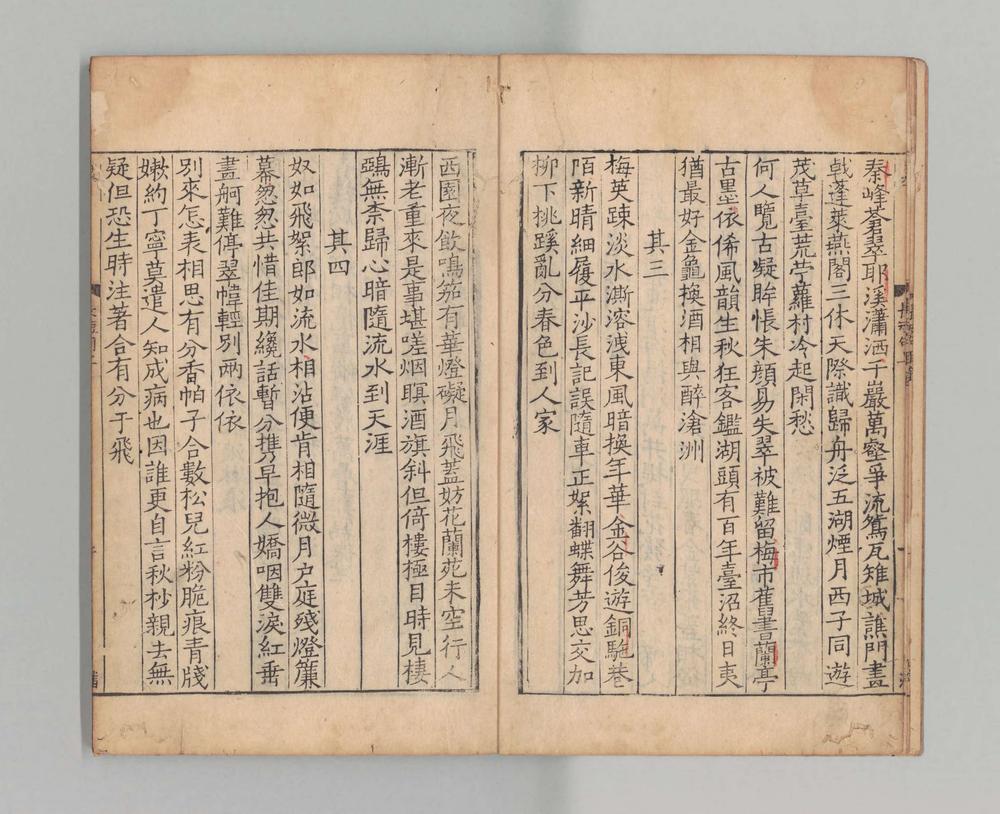 秦峰蒼翠耶溪瀟洒千巖萬壑爭流鴛瓦雉城譙門畫
戟蓬萊燕閣三休天際識歸舟泛五湖煙月西子同遊
茂草臺荒苧蘿村冷起閑愁
何人覽古凝眸悵朱顏易失翠被難留梅市舊書蘭亭
古墨依俙風韻生秋狂客鑑湖頭有百年臺沼終日夷
猶最好金龜換酒相與醉滄洲
其三
梅英踈淡水澌溶洩東風暗換年華金谷俊遊銅駞巷
陌新晴細履平沙長記誤隨車正絮翻蝶舞芳思交加
柳下挑蹊亂分春色到人家
西園夜飲鳴笳有華燈礙月飛蓋妨花蘭苑未空行人
漸老重來是事堪嗟烟暝酒旗斜但倚樓極目時見棲
鵶無柰歸心暗隨流水到天涯
其四
奴如飛絮郎如流水相沾便肯相隨微月户庭殘燈簾
幕怱怱共惜佳期纔話暫分携早抱人嬌咽雙淚紅垂
畫舸難停翠幃輕別兩依依
別來怎表相思有分香帕子合數松兒紅粉脆痕青牋
嫰約丁寧莫遣人知成病也因誰更自言秋杪親去無
疑但恐生時注著合有分于飛